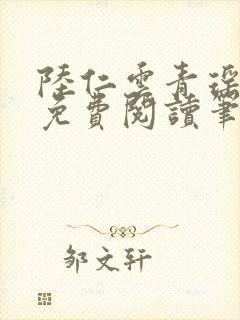 陸仁雲青瑶
免費閱讀筆
邹文轩